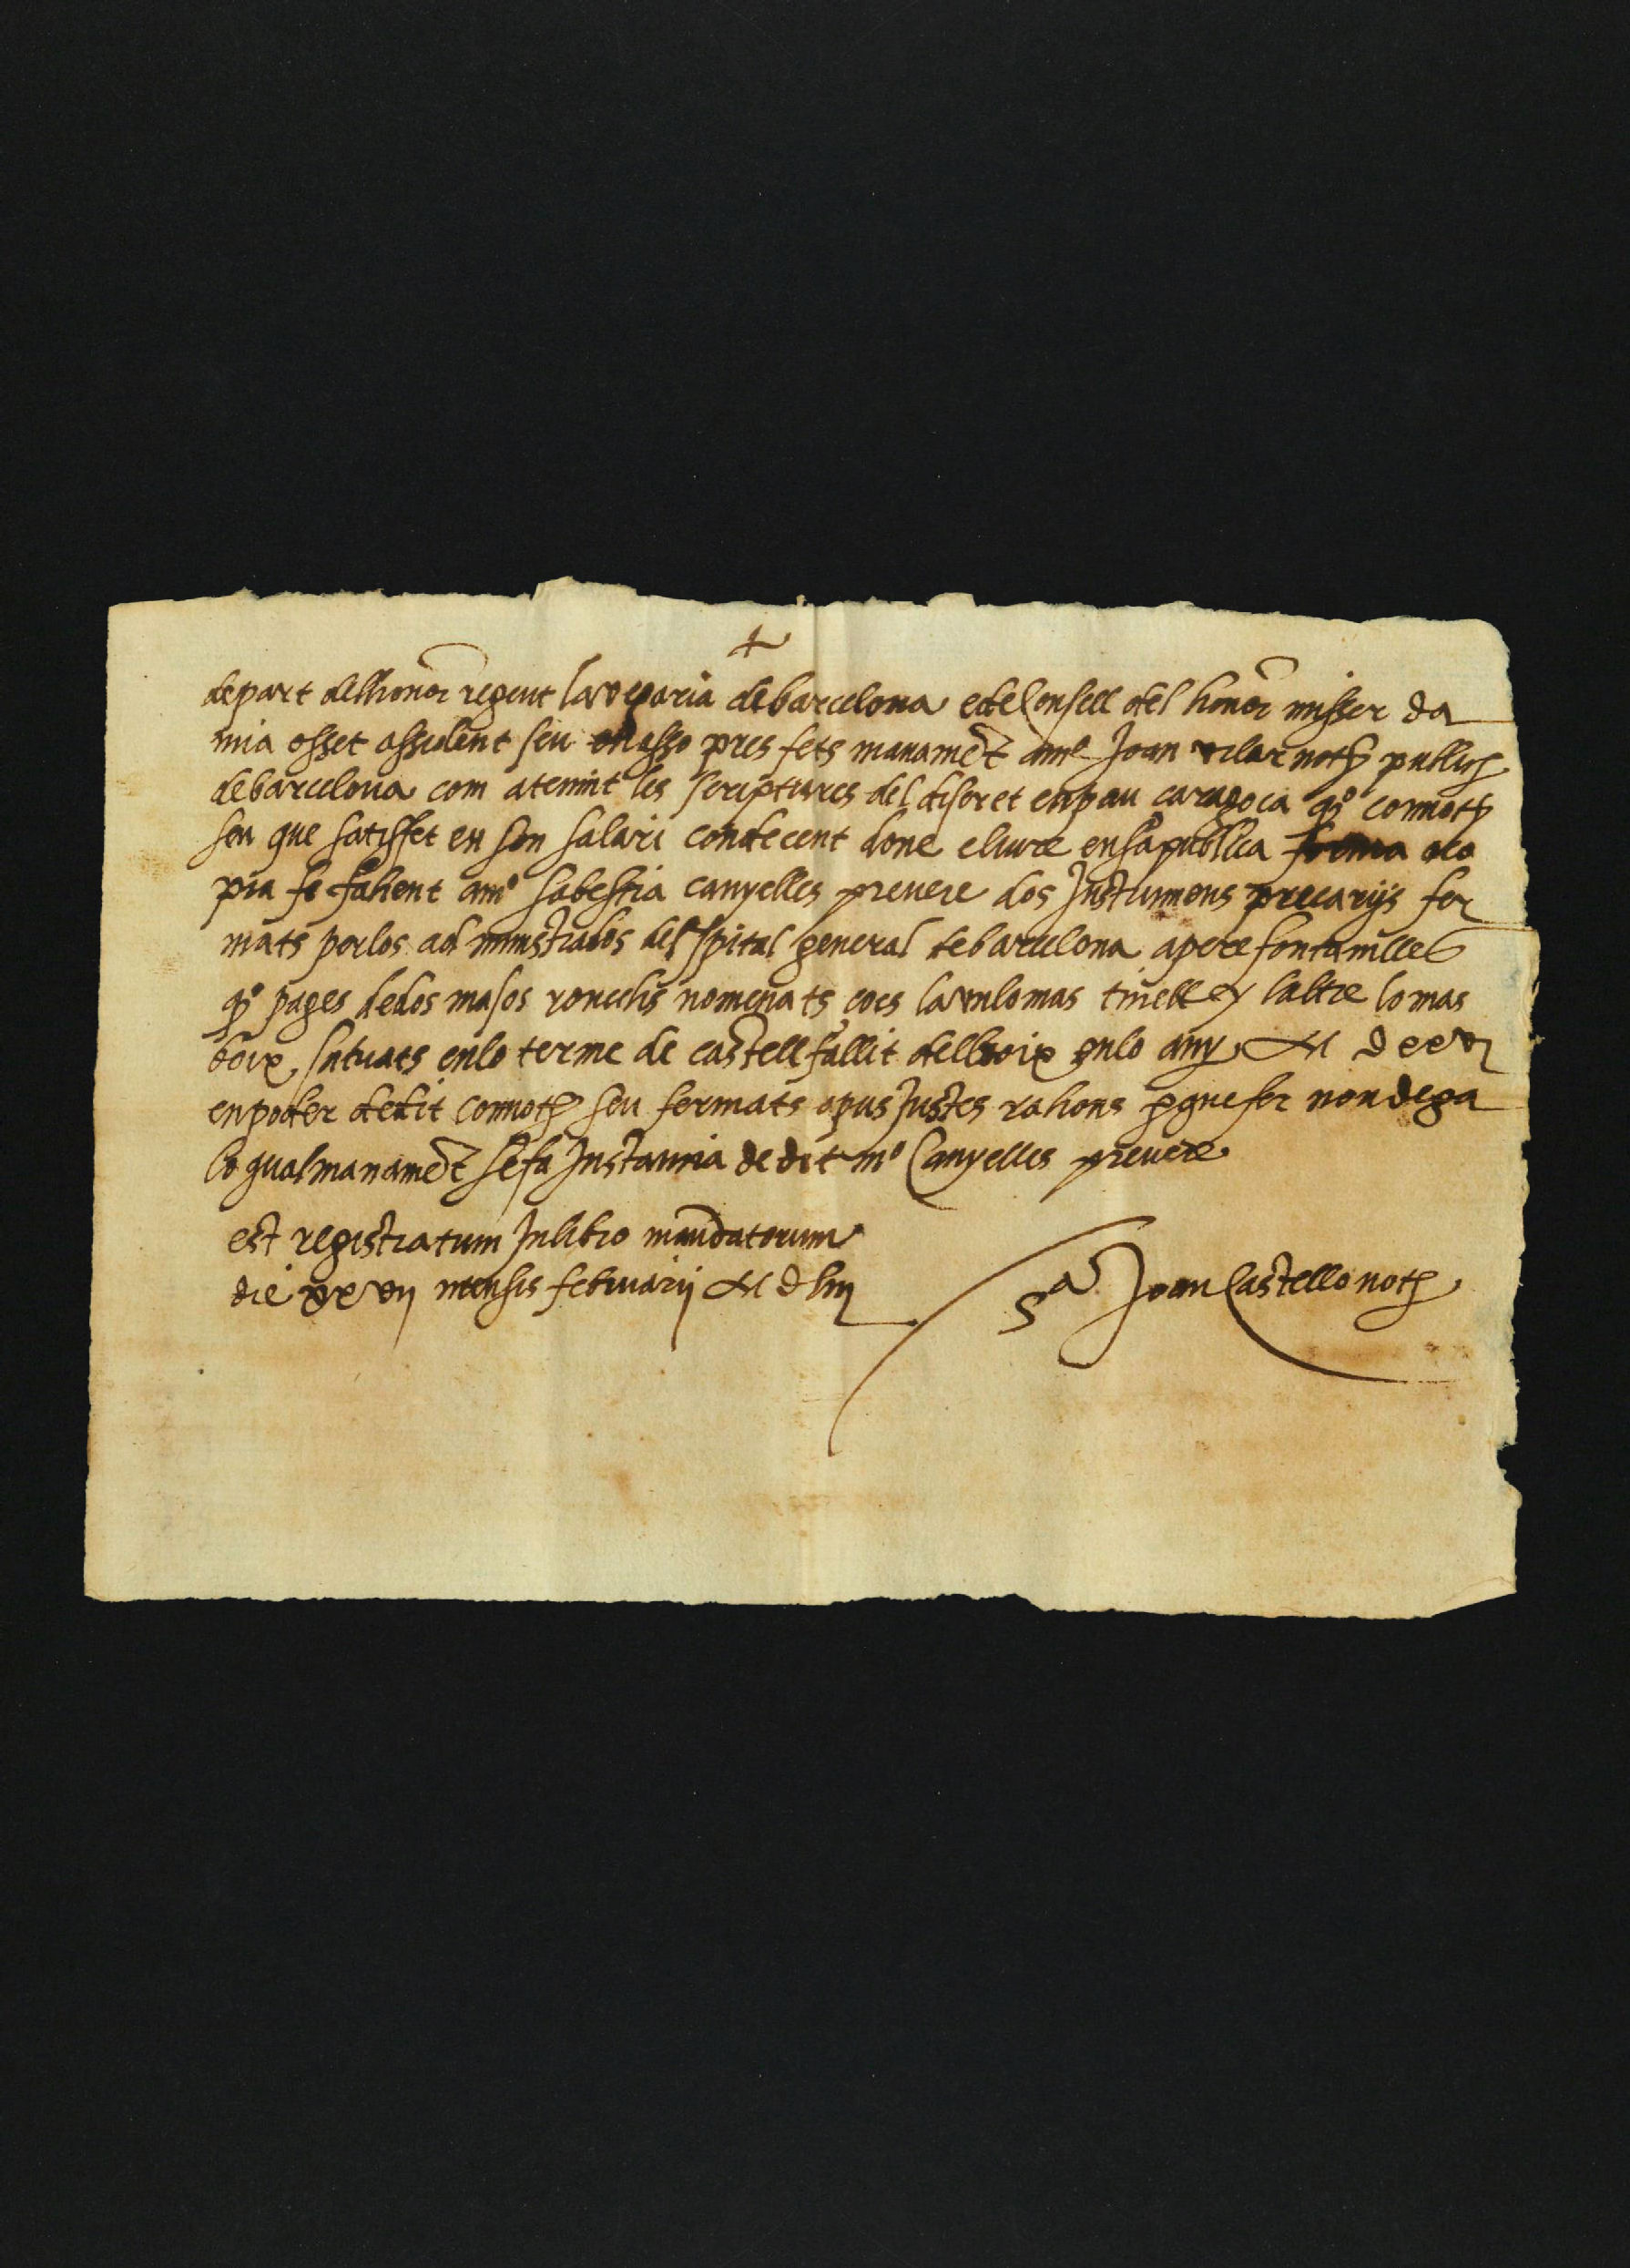 +
de part dell honor regent la vegaria de barcelona e de consell del honor misser da
mia osset assident seu en asso pres fets manamet an Joan vilar noth publich
de barcelona com a tenint les scriptures del discret en pau caragoca qo connoth
seu que satisfet en son salari condecent done e liure en sa publica forma o co
pia fe fahent a mo sabestia canyelles preuere dos Instrumens precarijs fer
mats per los administrados del spital general de barcelona a pere fontanilles
qo pages de dos masos ronechs nomenats ço es la un lo mas tinell y laltre lo mas
boix situats en lo terme de castellfullit dell boix en lo any M D xxvi
en poder de dit connoth seu fermats o pus Justes rahons p que fer non dega
lo qual manamet se fa Instantia de dit mo Canyelles preuere
est registratum In libro mandatorum
die xxvij mensis februarij M D liij
Sa Joan Castello noth